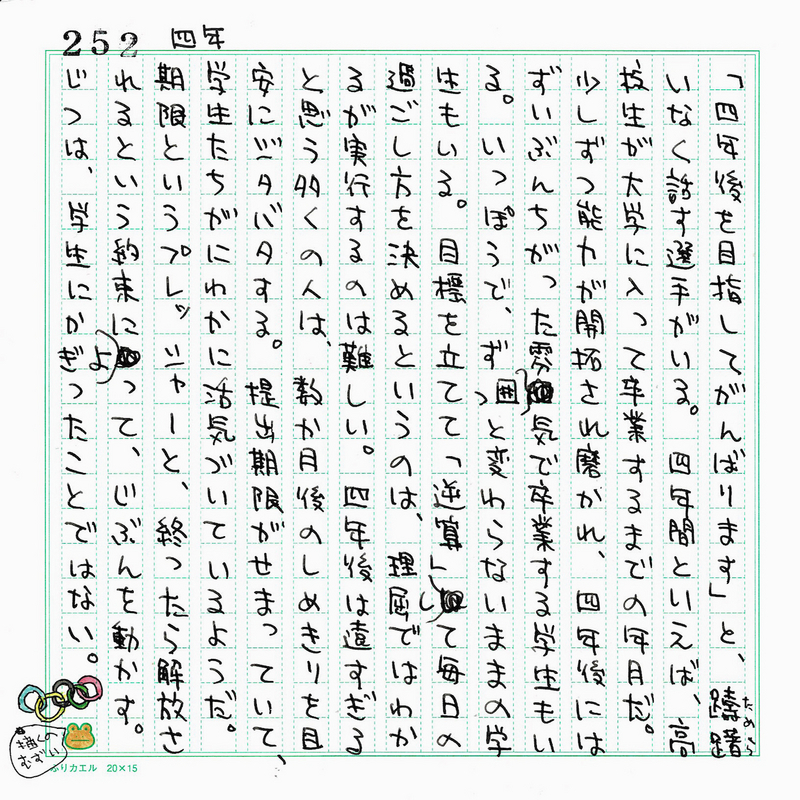 252 四年
「四年後を目指してがんばります」と、躊躇
ためら
いなく話す選手がいる。四年間といえば、高
校生が大学に入って卒業するまでの年月だ。
少しずつ能力が開拓され磨かれ、四年後には
ずいぶんちがった雰囲気で卒業する学生もい
る。いっぽうで、ずっと変わらないままの学
生もいる。目標を立てて「逆算」して毎日の
過ごし方を決めるというのは、理屈ではわか
るが実行するのは難しい。四年後は遠すぎる
と思う多くの人は、数か月後のしめきりを目
安にジタバタする。提出期限がせまっていて、
学生たちがにわかに活気づいているようだ。
期限というプレッシャーと、終ったら解放さ
れるという約束によって、じぶんを動かす。
じつは、学生にかぎったことではない。
描くの
むずい
ふりカエル 20×15